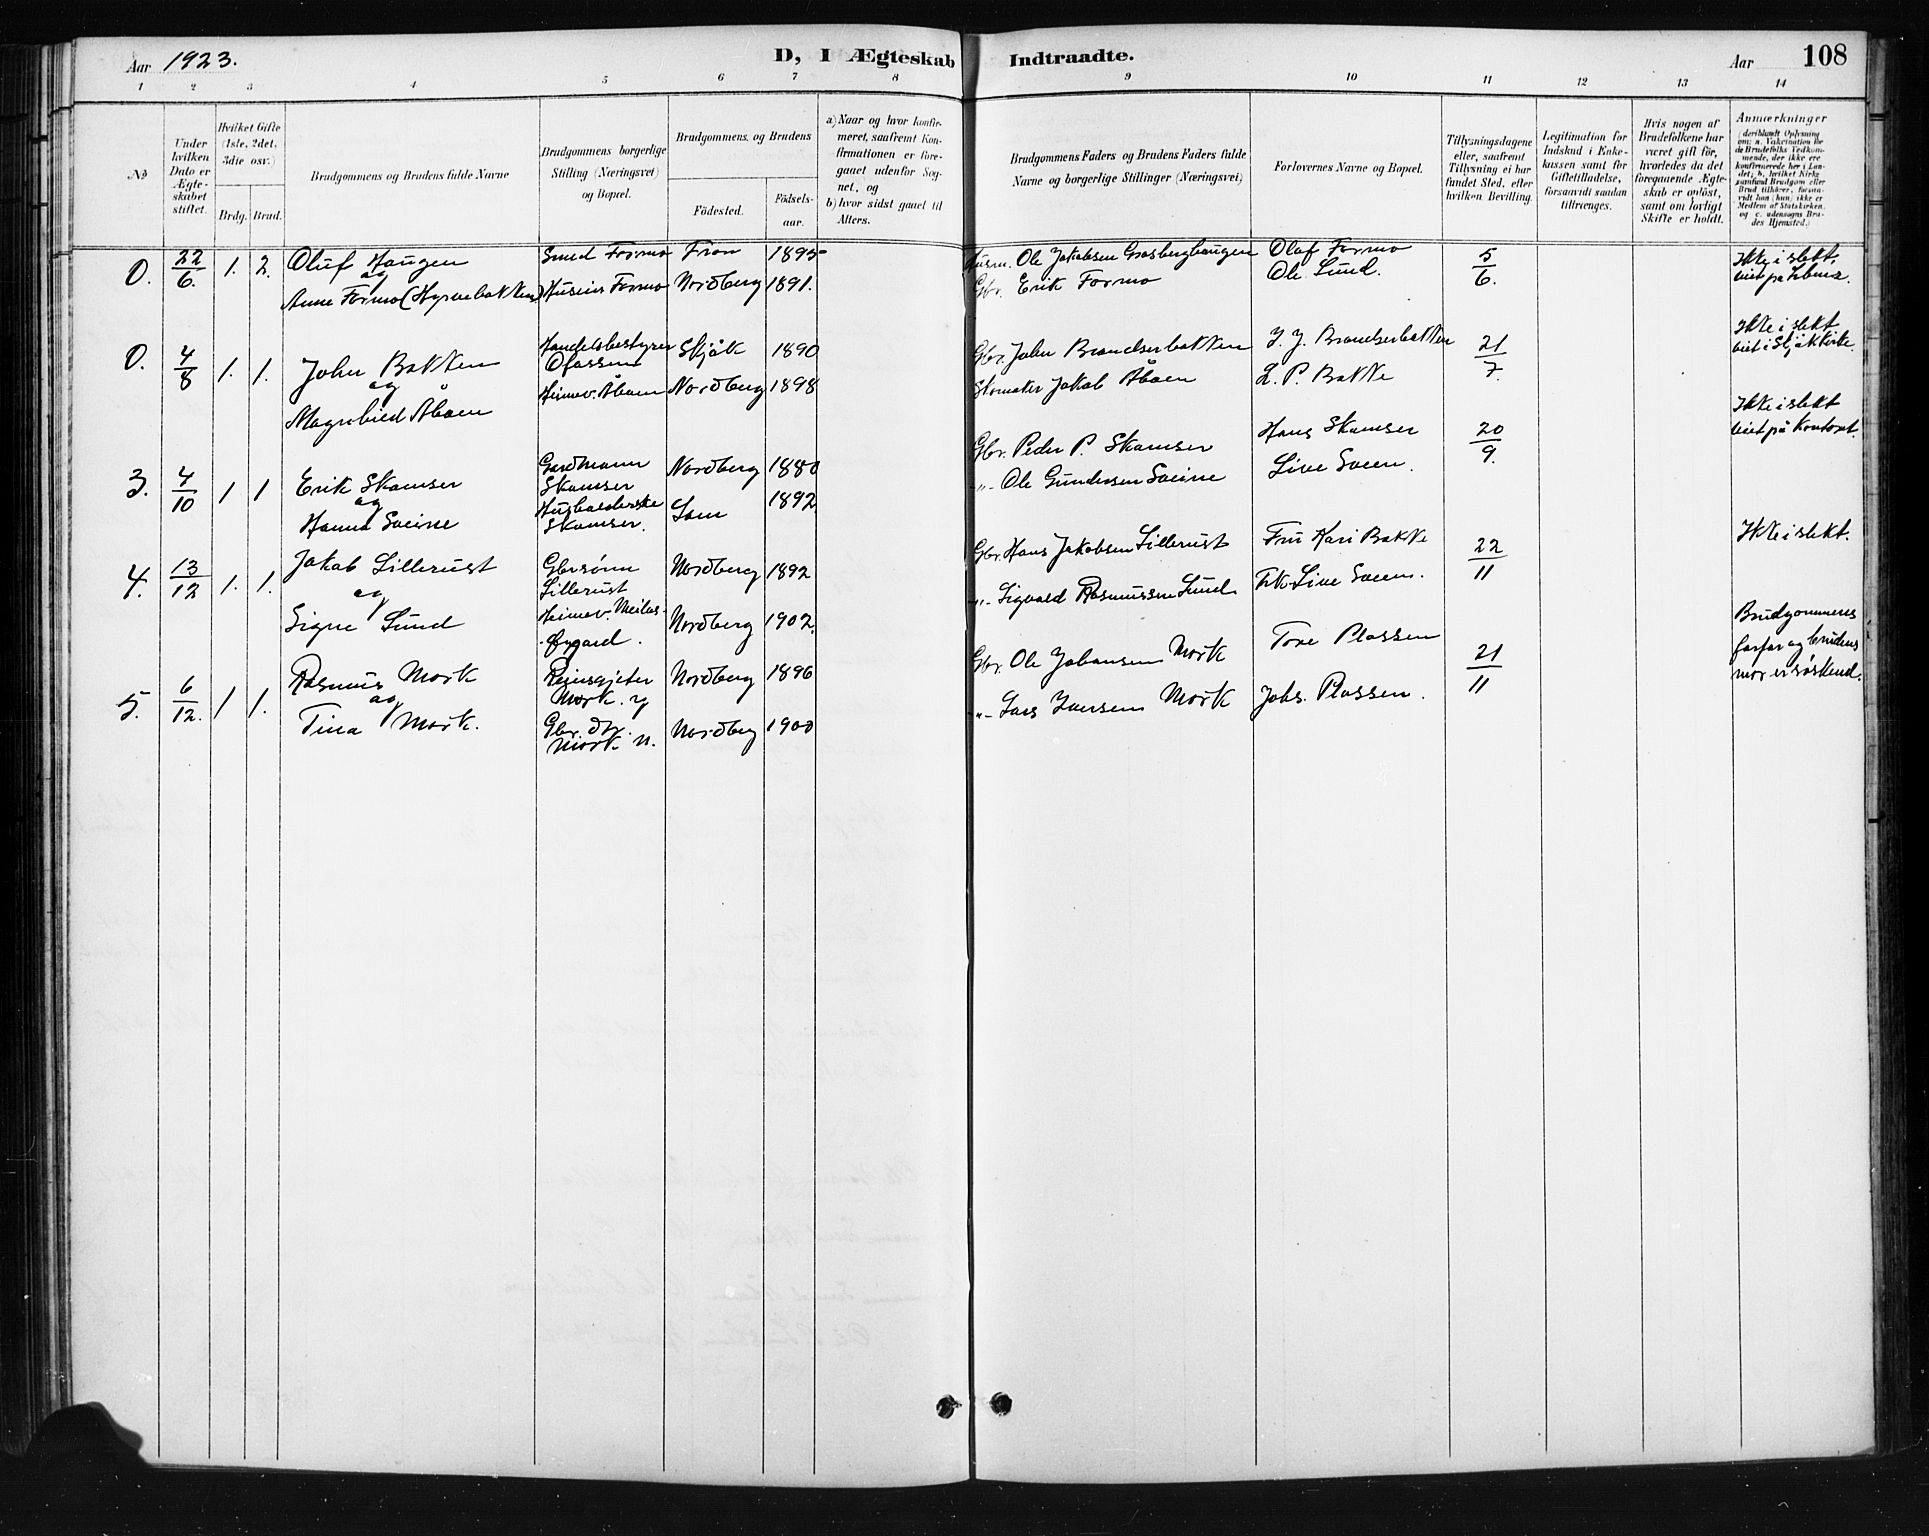 Aar 1923.
D, I Ægteskab Indtraadte.
Aar
108
1 2 3 4 5 6 7 8 9 10 11 12 13 14
No
Under hvilken Dato er Ægteskabet stiftet.
Hvilket Gifte (1ste, 2det, 3die osv.)
Brdg. Brud.
Brudgommens og Brudens fulde Navne
Brudgommens borgerlige Stilling (Næringsvei) og Bopæl.
Brudgommens og Brudens
Födested.
Födselsaar.
a) Naar og hvor konfirmeret, saafremt Konfirmationen er foregaaet udenfor Sognet, og
b) hvor sidst gaaet til Alters.
Brudgommens Faders og Brudens Faders fulde Navne og borgerlige Stillinger (Næringsvei)
Forlovernes Navne og Bopæl.
Tillysningsdagene eller, saafremt Tillysning ei har fundet Sted, efter hvilken Bevilling.
Legitimation for Indskud i Enkekassen samt for Giftetilladelse, forsaavidt saadan tiltrænges.
Hvis nogen af Brudefolkene har været gift før, hvorledes da det foregaaende Ægteskab er opløst, samt om lovligt Skifte er holdt.
Anmærkninger
0. 22/6. 1. 2. Oluf Haugen Smed Formo Fron 1895 Husm. Ole Jakobsen Graabergbaugen Olaf Formo 5/6. Ikke i slekt,
og
Anne Formo (Hyrvebakken) Huseier Formo Nordberg 1891. Gbr. Erik Formo Ole Lund.
0. 4/8 1. 1. John Bakken Handelsbestyrer Ofossen Skjåk 1890 Gbr. John Brandserbakken J. J. Brandserbakken 21/7. Ikke i slekt viet i Skjåk kirke.
og
Magnhild Åboen Heimev. Åboen Nordberg 1898 Skomaker Jakob Åboen L. P. Bakke
3. 4/10 1 1 Erik Skamser Gardmann Skamser Nordberg 1880 Gbr. Peder P. Skamser Hans Skamser 20/9. Ikke i slekt viet på Kontoret.
og
Hanna Sveine Husholderske Skamser. Lom 1892. -"- Ole Gundersen Sveine Live Sveen.
4. 13/12 1. 1. Jakob Lillerust Gbrsønn Lillerust Nordberg 1892 Gbr. Hans Jakobsen Lillerust Fru Kari Bakke 22/11 Ikke i slekt.
og
Signe Lund Heimev. Nordberg 1902. -"- Sigvald Rasmussen Lund Frk. Live Sveen.
5. 6/12. 1 1. Rasmus Mork Reinsgjeter Mork. y Nordberg 1896 Gbr. Ole Johansen Mork Tore Plassen 21/11 Brudgommens farfar og brudens mor er søskend.
og
Tina Mork. Gbr. dtr. Mork n. Nordberg 1900 -"- Lars Iversen Mork Johs. Plassen.